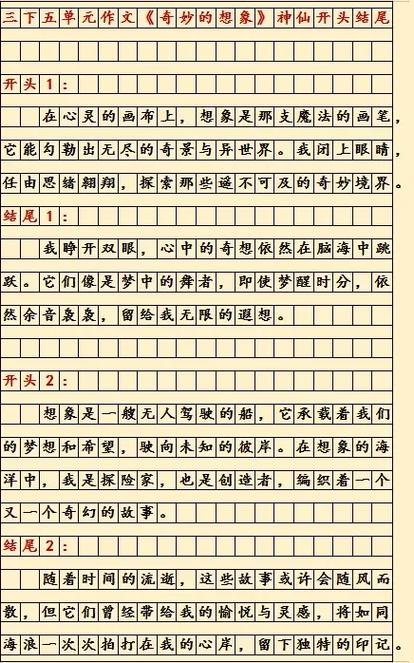 三下五单元作文《奇妙的想象》神仙开头结尾
开头1：
在心灵的画布上，想象是那支魔法的画笔，
它能勾勒出无尽的奇景与异世界。我闭上眼睛，
任由思绪翱翔，探索那些遥不可及的奇妙境界。
结尾1：
我睁开双眼，心中的奇想依然在脑海中跳
跃。它们像是梦中的舞者，即使梦醒时分，依
然余音袅袅，留给我无限的遐想。
开头2：
想象是一艘无人驾驶的船，它承载着我们
的梦想和希望，驶向未知的彼岸。在想象的海
洋中，我是探险家，也是创造者，编织着一个
又一个奇幻的故事。
结尾2：
随着时间的流逝，这些故事或许会随风而
散，但它们曾经带给我的愉悦与灵感，将如同
海浪一次次拍打在我的心岸，留下独特的印记。